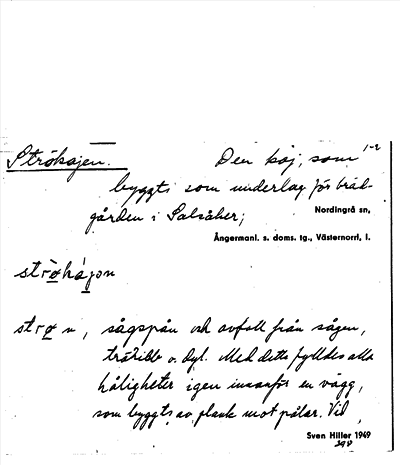 Ströhajen. Den kaj, som 1-2
byggts som underlag för bräd-
gården i Salsåker; Nordingrå sn,
Ångermanl. s. doms. tg., Västernorrl. l.
ströhájọn
strø n, sågspån och avfall från sågen,
träribb o. dyl. Med detta fylldes alla
håligheter igen innanför en vägg,
som byggts av plank mot pålar. Vid
Sven Hiller 1949